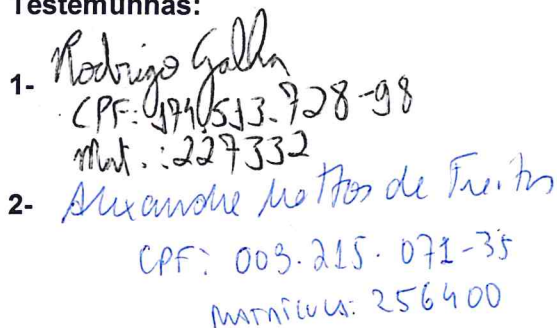 Testemunhas:
1- Rodrigo Galha
CPF: 174.513.728-98
Mat.: 227332
2- Alexandre Mattos de Freitas
CPF: 003.215.071-35
MATRÍCULA: 256400